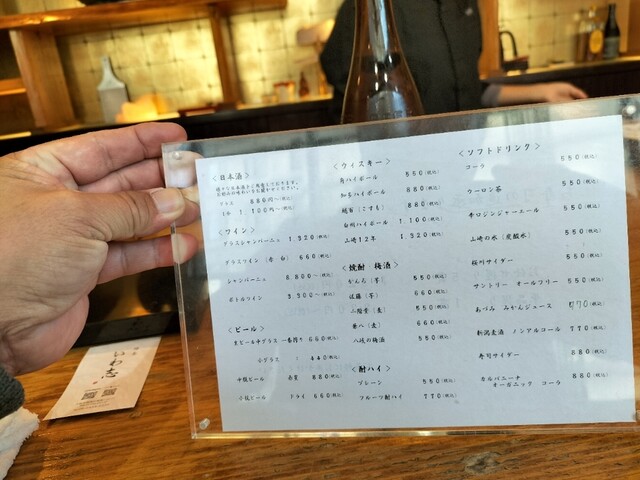 ＜日本酒＞
グラス 880円～(税込)
1合 1,100円～(税込)
＜ワイン＞
グラスシャンパーニュ 1,320(税込)
グラスワイン (赤 白) 660(税込)
シャンパーニュ 8,800～(税込)
ボトルワイン 3,300～(税込)
＜ビール＞
生ビール中グラス 一番搾り 660(税込)
小グラス 440(税込)
中瓶ビール 赤星 880(税込)
小瓶ビール ドライ 660(税込)
＜ウィスキー＞
角ハイボール 550(税込)
知多ハイボール 880(税込)
越百 (こすも) 880(税込)
白州ハイボール 1,100(税込)
山崎12年 1,320(税込)
＜焼酎 梅酒＞
かんろ (芋) 550(税込)
佐藤 (芋) 660(税込)
二階堂 (麦) 550(税込)
兼八 (麦) 660(税込)
八咫の梅酒 550(税込)
＜酎ハイ＞
プレーン 550(税込)
フルーツ酎ハイ 770(税込)
＜ソフトドリンク＞
コーラ 550(税込)
ウーロン茶 550(税込)
辛口ジンジャーエール 550(税込)
山崎の水 (炭酸水) 550(税込)
桜川サイダー 550(税込)
サントリー オールフリー 550(税込)
あづみ みかんジュース 770(税込)
新潟麦酒 ノンアルコール 770(税込)
寿司サイダー 880(税込)
オーガニック コーラ 880(税込)
いわ志